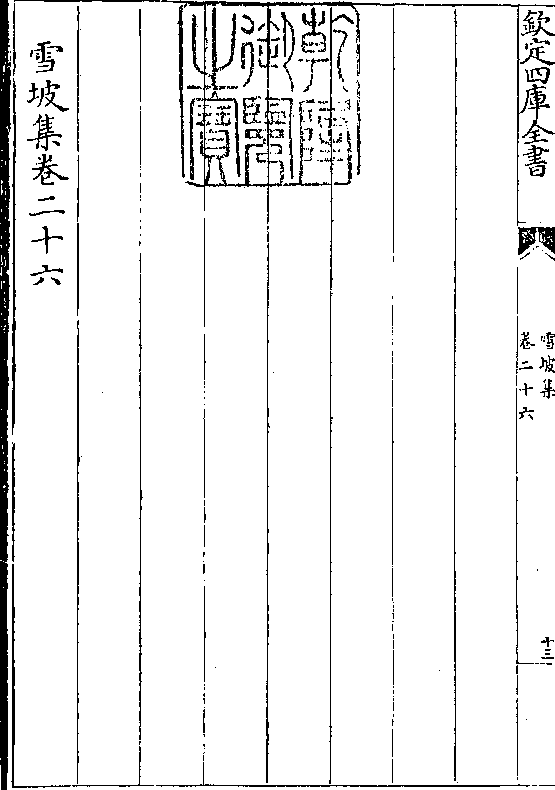 欽定四庫全書
雪坡集
卷二十六
十三
乾隆御覽之寶
雪坡集卷二十六